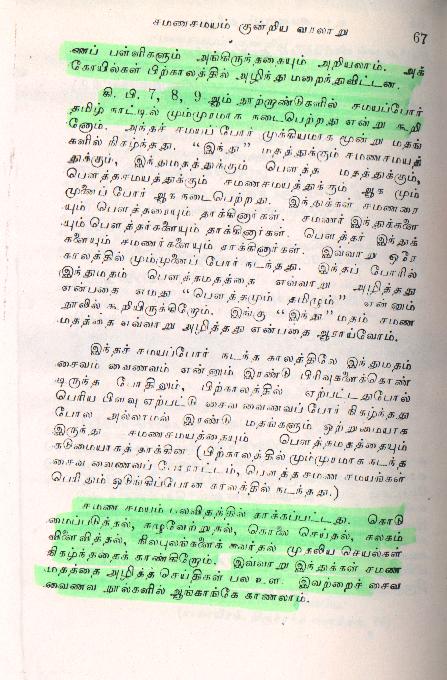 சமணசமயம் குன்றிய வரலாறு
67
ணப் பள்ளிகளும் அங்கிருந்ததையும் அறியலாம். அக்
கோயில்கள் பிற்காலத்தில் அழிந்து மறைந்துவிட்டன.
கி. பி. 7, 8, 9 ஆம் நூற்றாண்டுகளில் சமயப்போர்
தமிழ் நாட்டில் மும்முரமாக நடைபெற்றது என்று கூறி
னோம். அந்தச் சமயப் போர் முக்கியமாக மூன்று மதங்
களில் நிகழ்ந்தது. “இந்து” மதத்துக்கும் சமணசமயத்
துக்கும், இந்துமதத்துக்கும் பௌத்த மதத்துக்கும்,
பௌத்தசமயத்துக்கும் சமணசமயத்துக்கும் ஆக மும்
முனைப் போர் ஆக நடைபெற்றது. இந்துக்கள் சமணரை
யும் பௌத்தரையும் தாக்கினார்கள். சமணர் இந்துக்களை
யும் பௌத்தர்களையும் தாக்கினார்கள். பௌத்தர் இந்துக்
களையும் சமணர்களையும் தாக்கினார்கள். இவ்வாறு ஒரே
காலத்தில் மும்முனைப் போர் நடந்தது. இந்தப் போரில்
இந்துமதம் பௌத்தமதத்தை எவ்வாறு அழித்தது
என்பதை எமது “பௌத்தமும் தமிழும்” என்னும்
நூலில் கூறியிருக்கிறோம். இங்கு “இந்து” மதம் சமண
மதத்தை எவ்வாறு அழித்தது என்பதை ஆராய்வோம்.
இந்தச் சமயப்போர் நடந்த காலத்திலே இந்துமதம்
சைவம் வைணவம் என்னும் இரண்டு பிரிவுகளைக்கொண்
டிருந்த போதிலும், பிற்காலத்தில் ஏற்பட்டதுபோல்
பெரிய பிளவு ஏற்பட்டு சைவ வைணவப்போர் நிகழ்ந்தது
போல அல்லாமல் இரண்டு மதங்களும் ஒற்றுமையாக
இருந்து சமணசமயத்தையும் பௌத்தமதத்தையும்
கடுமையாகத் தாக்கின (பிற்காலத்தில் மும்முரமாக நடந்த
சைவ வைணவப் போராட்டம், பௌத்த சமண சமயங்கள்
பெரிதும் ஒடுங்கிப்போன காலத்தில் நடந்தது.)
சமண சமயம் பலவிதத்தில் தாக்கப்பட்டது. கொடு
மைப்படுத்தல், கழுவேற்றுதல், கொலை செய்தல், கலகம்
விளைவித்தல், நிலபுலங்களைக் கவர்தல் முதலிய செயல்கள்
நிகழ்ந்ததைக் காண்கிறோம். இவ்வாறு இந்துக்கள் சமண
மதத்தை அழித்த செய்திகள் பல உள. இவற்றைச் சைவ
வைணவ நூல்களில் ஆங்காங்கே காணலாம்.